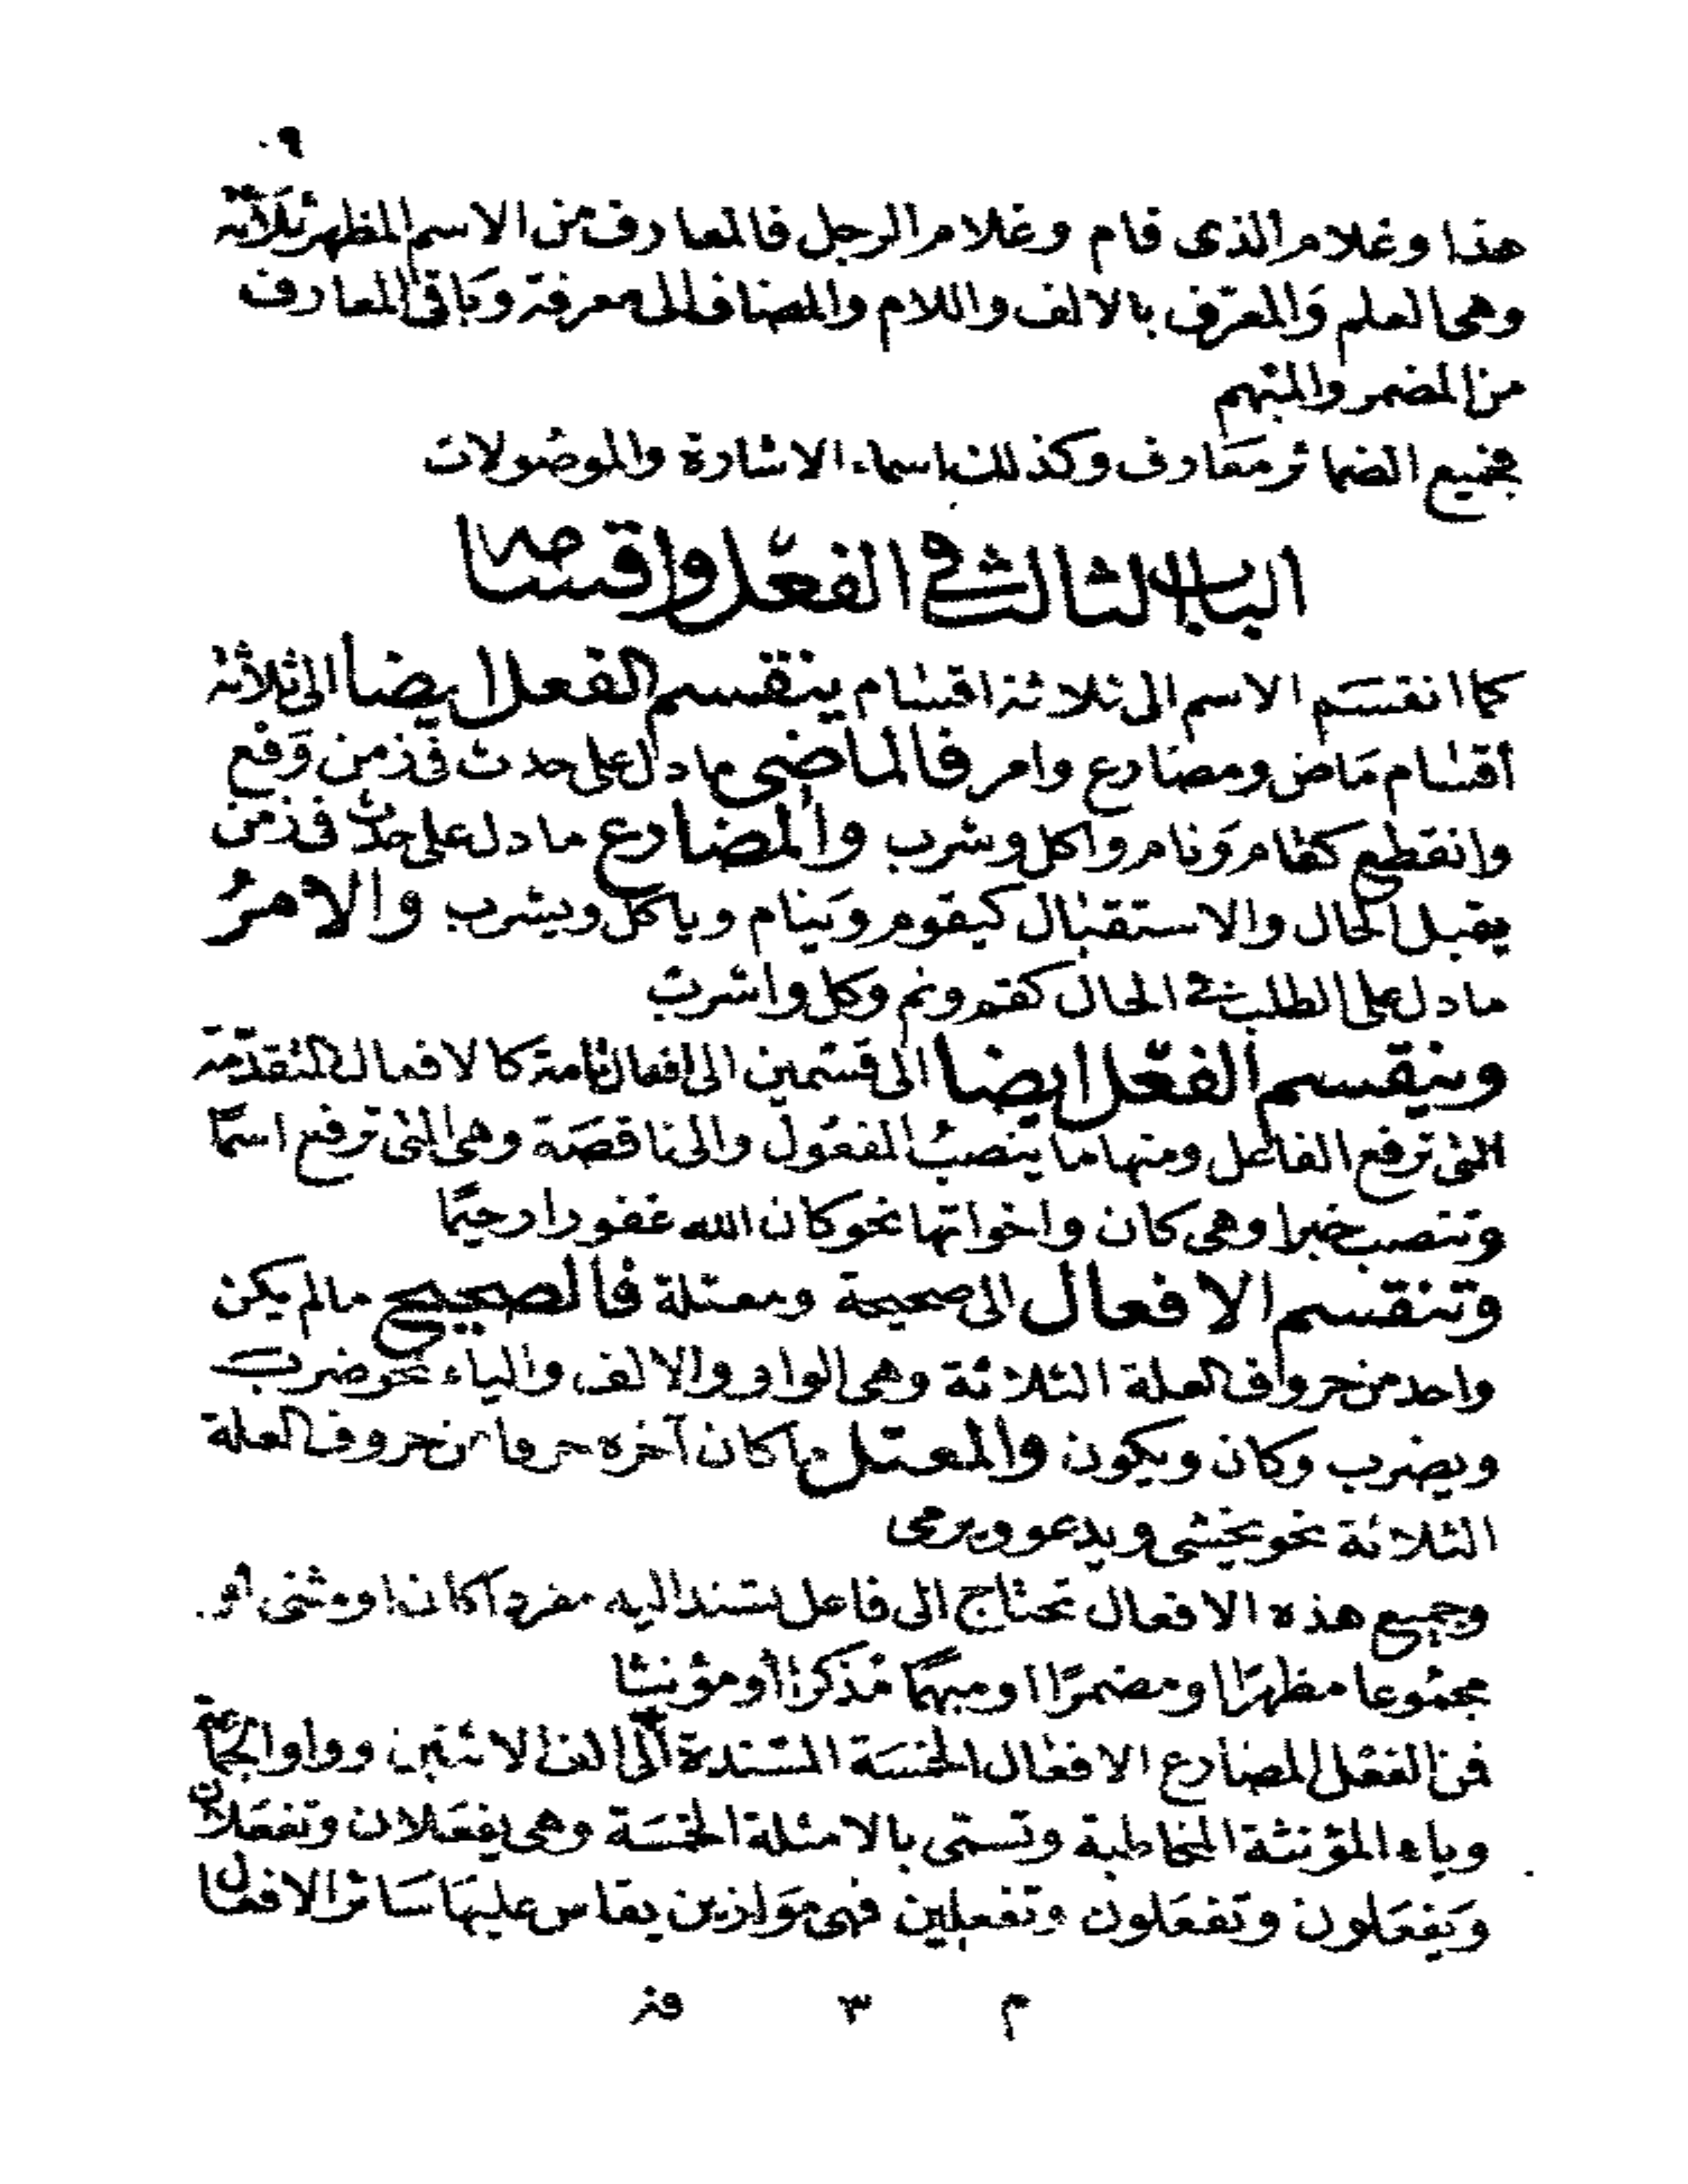 ٩
هذا وغلام الذى قام وغلام الرجل فالمعارف من الاسم المظهر ثلاثة
وهى العلم والمعرّف بالالف واللام والمضاف الى معرفة وباقى المعارف
من المضمر والمبهم
فجميع الضمائر معارف وكذلك اسماء الاشارة والموصولات
الباب الثالث فى الفعل واقسامه
كما انقسم الاسم الى ثلاثة اقسام ينقسم الفعل ايضا الى ثلاثة
أقسام ماض ومضارع وامر فالماضى ما دل على حدث فى زمن وقع
وانقطع كقام ونام واكل وشرب والمضارع ما دل على حدث فى زمن
يقبل الحال والاستقبال كيقوم وينام وياكل ويشرب والامرُ
ما دل على الطلب فى الحال كقم ونم وكل واشرب
وينقسم الفعل ايضا الى قسمين الى افعال تامة كالافعال المتقدّمة
التى ترفع الفاعل ومنها ما ينصبُ المفعول والى ناقصة وهى التى ترفع اسمًا
وتنصب خبرا وهى كان واخواتها نحو كان الله غفورا رحيمًا
وتنقسم الافعال الى صحيحة ومعتلة فالصحيح ما لم يكن
واحد من حروف العلة الثلاثة وهى الواو والالف والياء نحو ضرب
ويضرب وكان ويكون والمعتل ما كان آخره حرفا من حروف العلة
الثلاثة نحو يخشى ويدعو ويرمى
وجميع هذه الافعال تحتاج الى فاعل تسند اليه مفردا كان او مثنى أو
مجموعا مظهرًا ومضمرًا او مبهمًا مذكرًا أو مؤنثا
فمن الفعل المضارع الافعال الخمسة المسندة الى الف الاثنين وواو الجماعة
وياء المؤنثة المخاطبة وتسمى بالامثلة الخمسة وهى يفعلان وتفعلان
ويفعلون وتفعلون وتفعلين فهى موازين يقاس عليها سائر الافعال
م ٣